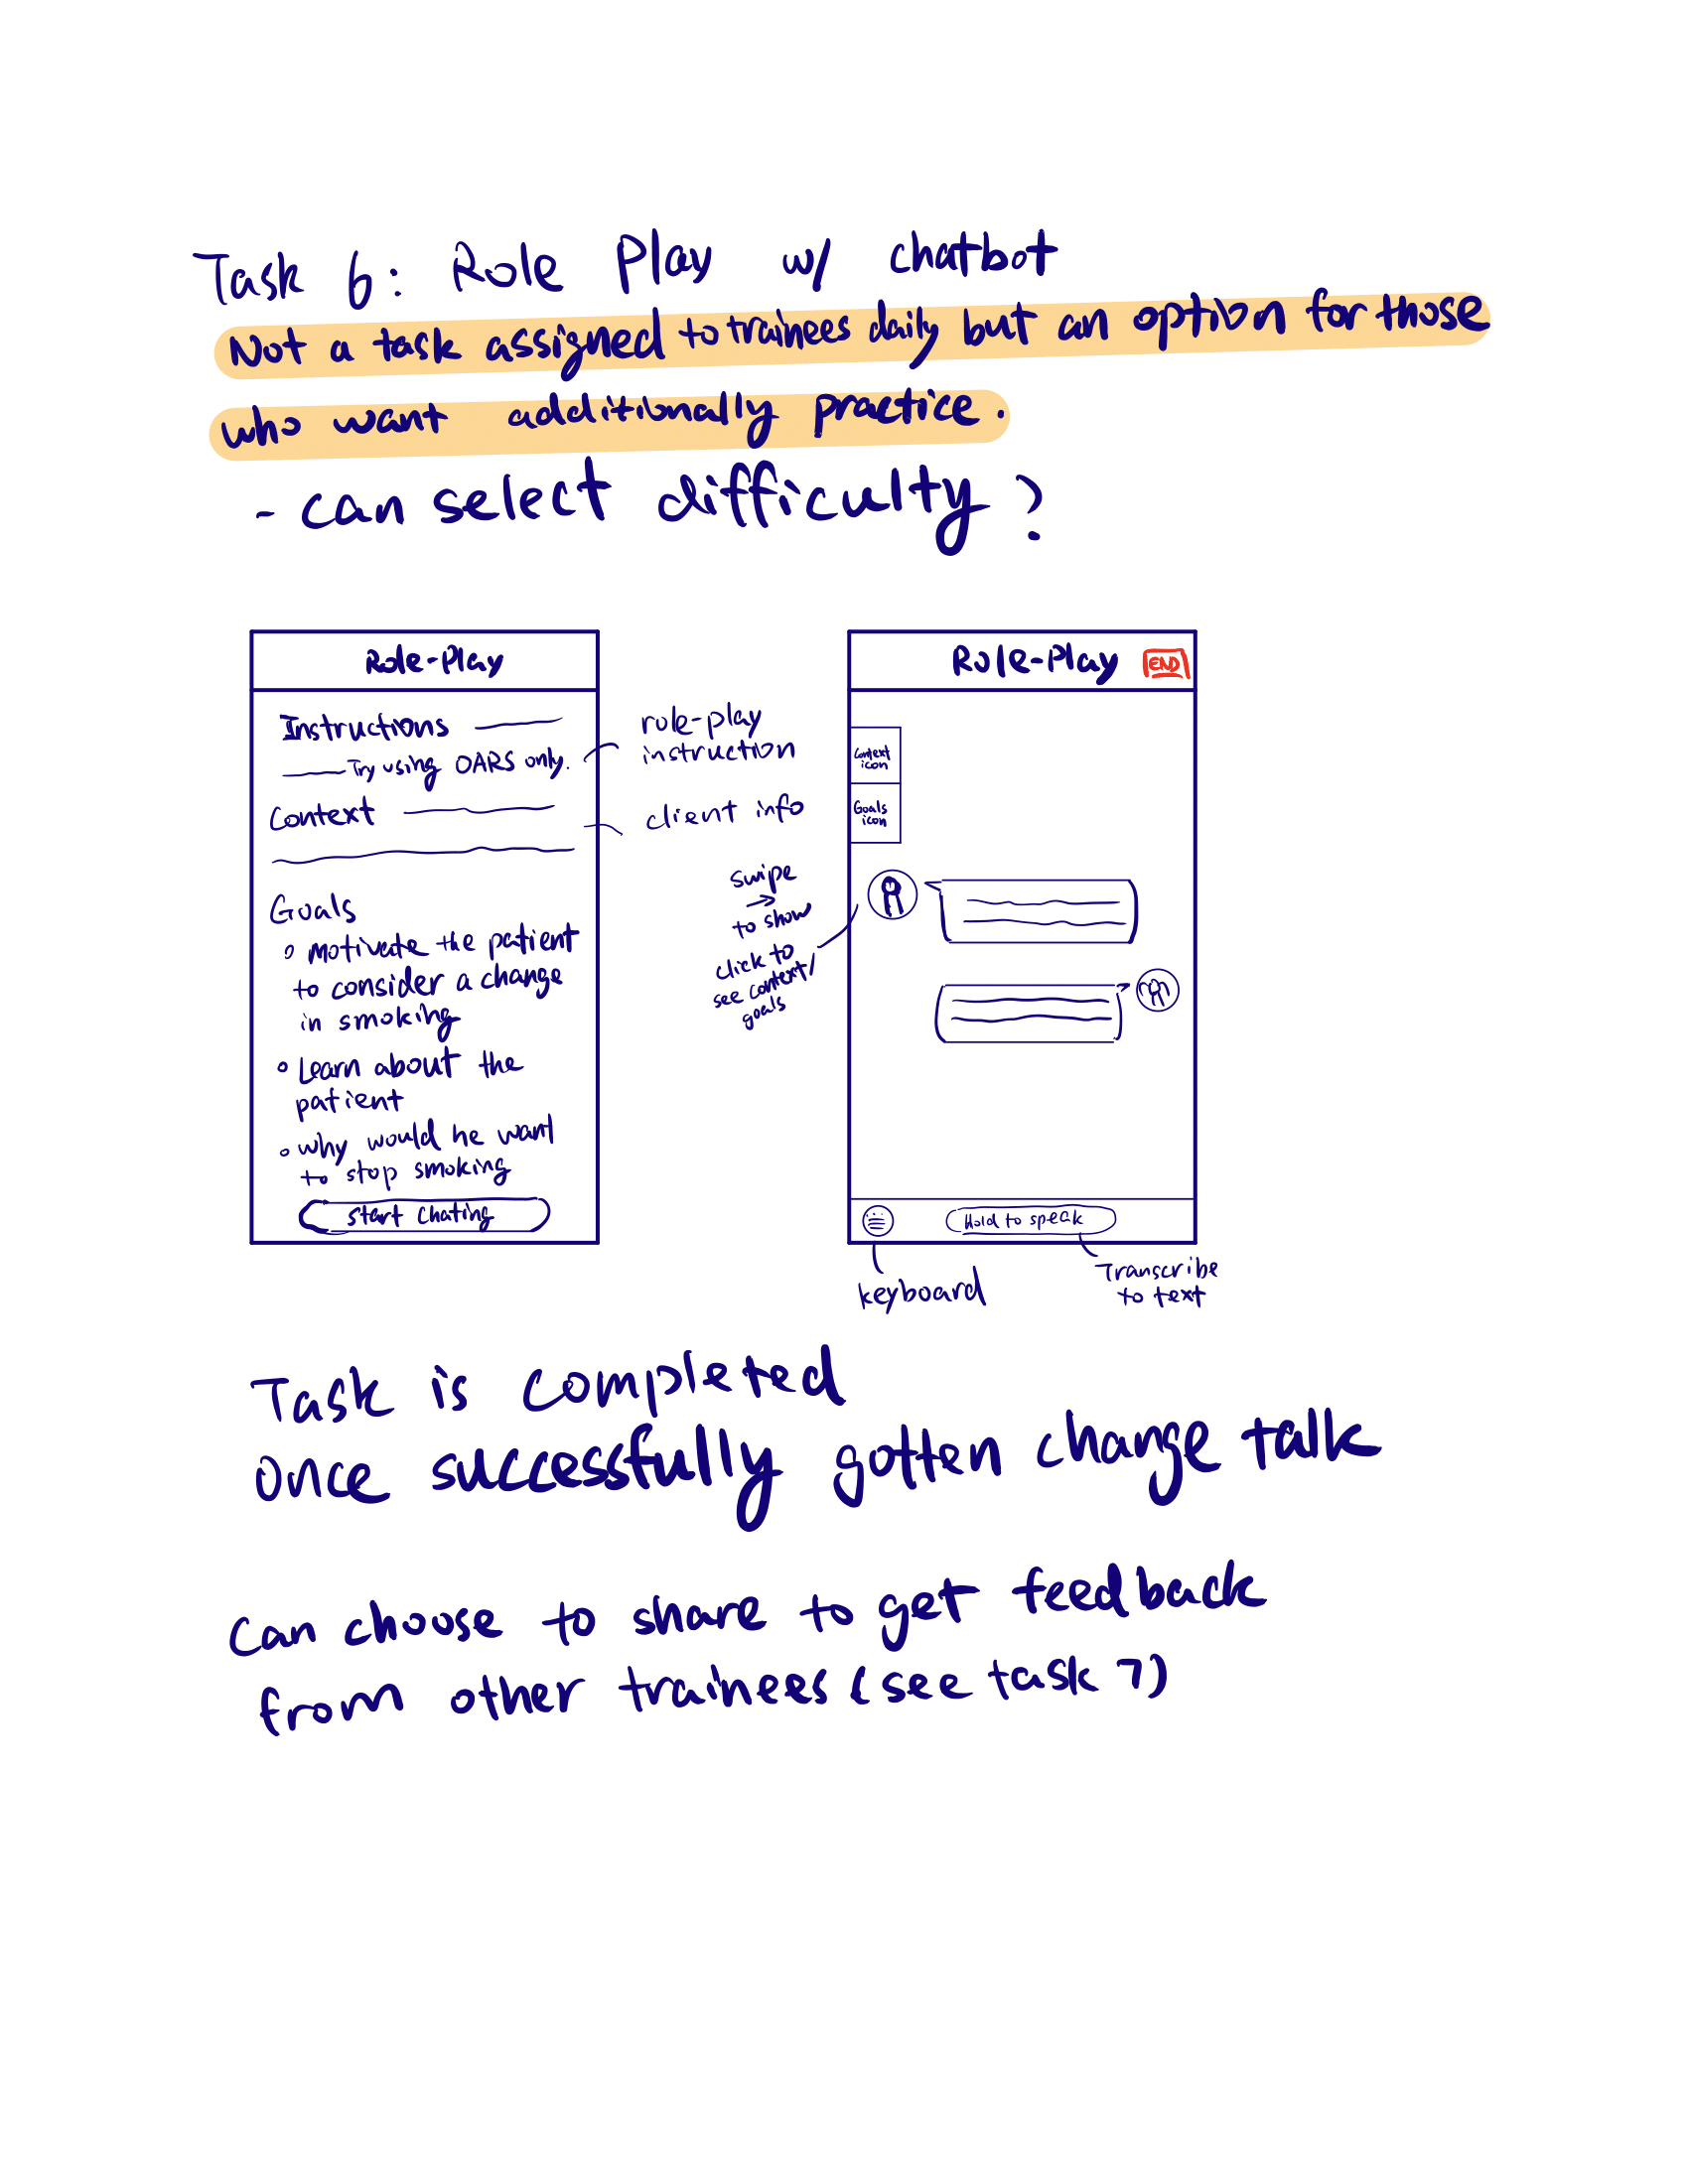 Task 6: Role Play w/ chatbot
Not a task assigned to trainees daily but an option for those
who want additionally practice.
- can select difficulty?
Role-Play
Instructions
Try using OARS only.
Context
Goals
motivate the patient
to consider a change
in smoking
Learn about the
patient
why would he want
to stop smoking
start chating
role-play
instruction
client info
swipe
→
to show
click to
see context/
goals
Role-Play
END
Context
icon
Goals
icon
Hold to speak
keyboard
Transcribe
to text
Task is completed
once successfully gotten change talk
Can choose to share to get feedback
from other trainees (see task 7)